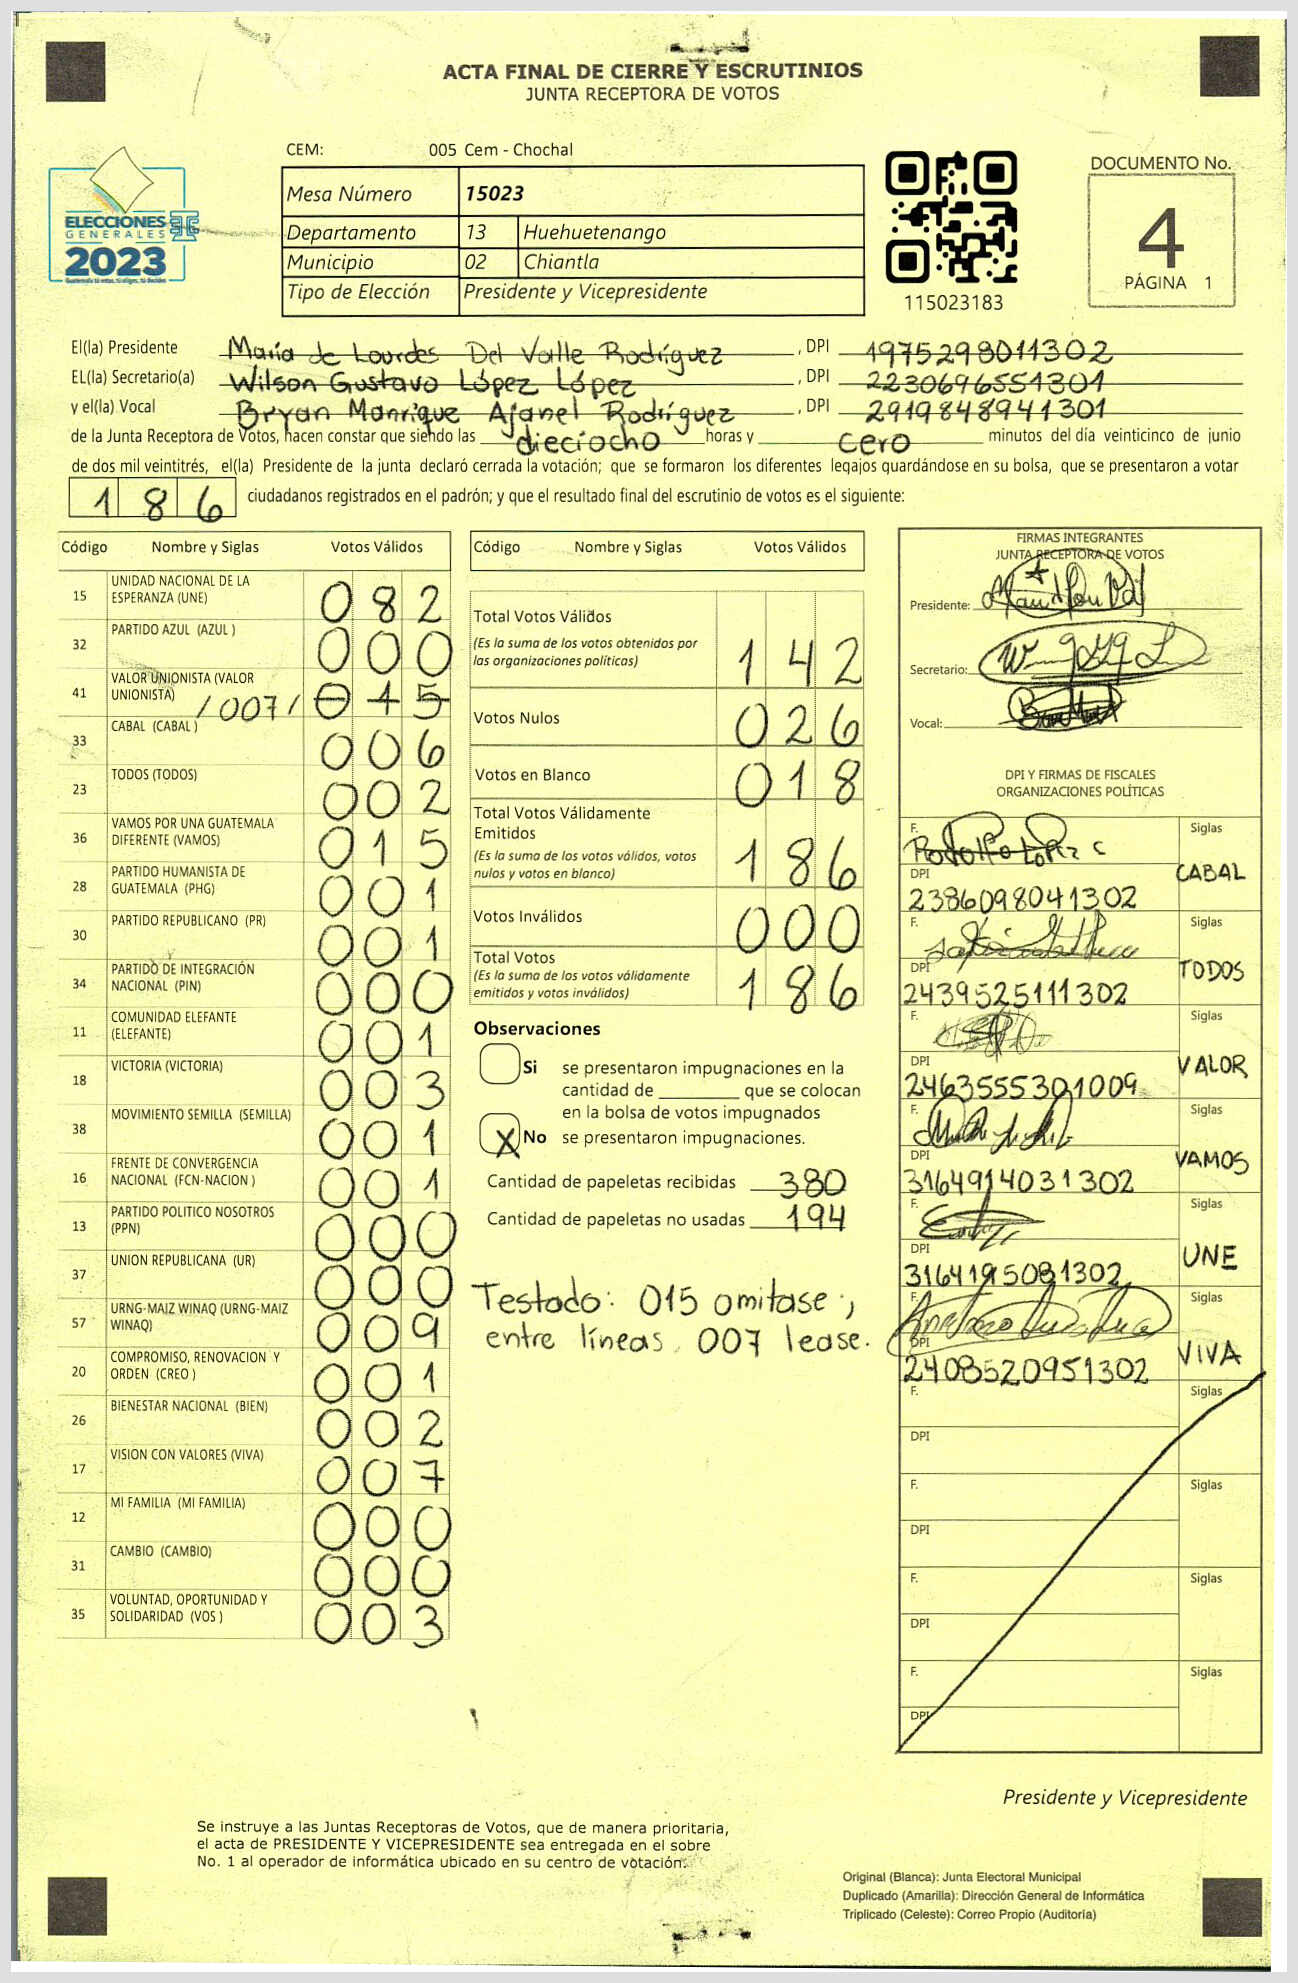 ACTA FINAL DE CIERRE Y ESCRUTINIOS
JUNTA RECEPTORA DE VOTOS
CEM: 005 Cem - Chochal
Mesa Número 15023
Departamento 13 Huehuetenango
Municipio 02 Chiantla
Tipo de Elección Presidente y Vicepresidente
ELECCIONES
GENERALES
2023
115023183
DOCUMENTO No.
4
PÁGINA 1
El(la) Presidente María de Lourdes Del Valle Rodríguez, DPI 1975298011302
EL(la) Secretario(a) Wilson Gustavo López López, DPI 2230696551301
y el(la) Vocal Bryan Manrique Ajanel Rodríguez, DPI 2919848941301
de la Junta Receptora de Votos, hacen constar que siendo las dieciocho horas y cero minutos del día veinticinco de junio
de dos mil veintitrés, el(la) Presidente de la junta declaró cerrada la votación; que se formaron los diferentes legajos guardándose en su bolsa, que se presentaron a votar
186 ciudadanos registrados en el padrón; y que el resultado final del escrutinio de votos es el siguiente:
Código Nombre y Siglas Votos Válidos
15 UNIDAD NACIONAL DE LA ESPERANZA (UNE) 082
32 PARTIDO AZUL (AZUL ) 000
41 VALOR UNIONISTA (VALOR UNIONISTA) /007/ 015
33 CABAL (CABAL ) 006
23 TODOS (TODOS) 002
36 VAMOS POR UNA GUATEMALA DIFERENTE (VAMOS) 015
28 PARTIDO HUMANISTA DE GUATEMALA (PHG) 001
30 PARTIDO REPUBLICANO (PR) 001
34 PARTIDO DE INTEGRACIÓN NACIONAL (PIN) 000
11 COMUNIDAD ELEFANTE (ELEFANTE) 001
18 VICTORIA (VICTORIA) 003
38 MOVIMIENTO SEMILLA (SEMILLA) 001
16 FRENTE DE CONVERGENCIA NACIONAL (FCN-NACION ) 001
13 PARTIDO POLITICO NOSOTROS (PPN) 000
37 UNION REPUBLICANA (UR) 000
57 URNG-MAIZ WINAQ (URNG-MAIZ WINAQ) 009
20 COMPROMISO, RENOVACION Y ORDEN (CREO ) 001
26 BIENESTAR NACIONAL (BIEN) 002
17 VISION CON VALORES (VIVA) 007
12 MI FAMILIA (MI FAMILIA) 000
31 CAMBIO (CAMBIO) 000
35 VOLUNTAD, OPORTUNIDAD Y SOLIDARIDAD (VOS ) 003
Código Nombre y Siglas Votos Válidos
Total Votos Válidos 142
(Es la suma de los votos obtenidos por
las organizaciones políticas)
Votos Nulos 026
Votos en Blanco 018
Total Votos Válidamente
Emitidos 186
(Es la suma de los votos válidos, votos
nulos y votos en blanco)
Votos Inválidos 000
Total Votos 186
(Es la suma de los votos válidamente
emitidos y votos inválidos)
Observaciones
Si se presentaron impugnaciones en la
cantidad de ________ que se colocan
en la bolsa de votos impugnados
X No se presentaron impugnaciones.
Cantidad de papeletas recibidas 380
Cantidad de papeletas no usadas 194
Testado: 015 omitase;
entre líneas 007 lease.
FIRMAS INTEGRANTES
JUNTA RECEPTORA DE VOTOS
Presidente:
Secretario:
Vocal:
DPI Y FIRMAS DE FISCALES
ORGANIZACIONES POLÍTICAS
F. Rodolfo López C Siglas
DPI 2386098041302 CABAL
F. Siglas
DPI 2439525111302 TODOS
F. Siglas
DPI 2463555301009 VALOR
F. Siglas
DPI 3164914031302 VAMOS
F. Siglas
DPI 3164195081302 UNE
F. Siglas
DPI 2408520951302 VIVA
F. Siglas
DPI
F. Siglas
DPI
F. Siglas
DPI
F. Siglas
DPI
Presidente y Vicepresidente
Se instruye a las Juntas Receptoras de Votos, que de manera prioritaria,
el acta de PRESIDENTE Y VICEPRESIDENTE sea entregada en el sobre
No. 1 al operador de informática ubicado en su centro de votación.
Original (Blanca): Junta Electoral Municipal
Duplicado (Amarilla): Dirección General de Informática
Triplicado (Celeste): Correo Propio (Auditoría)